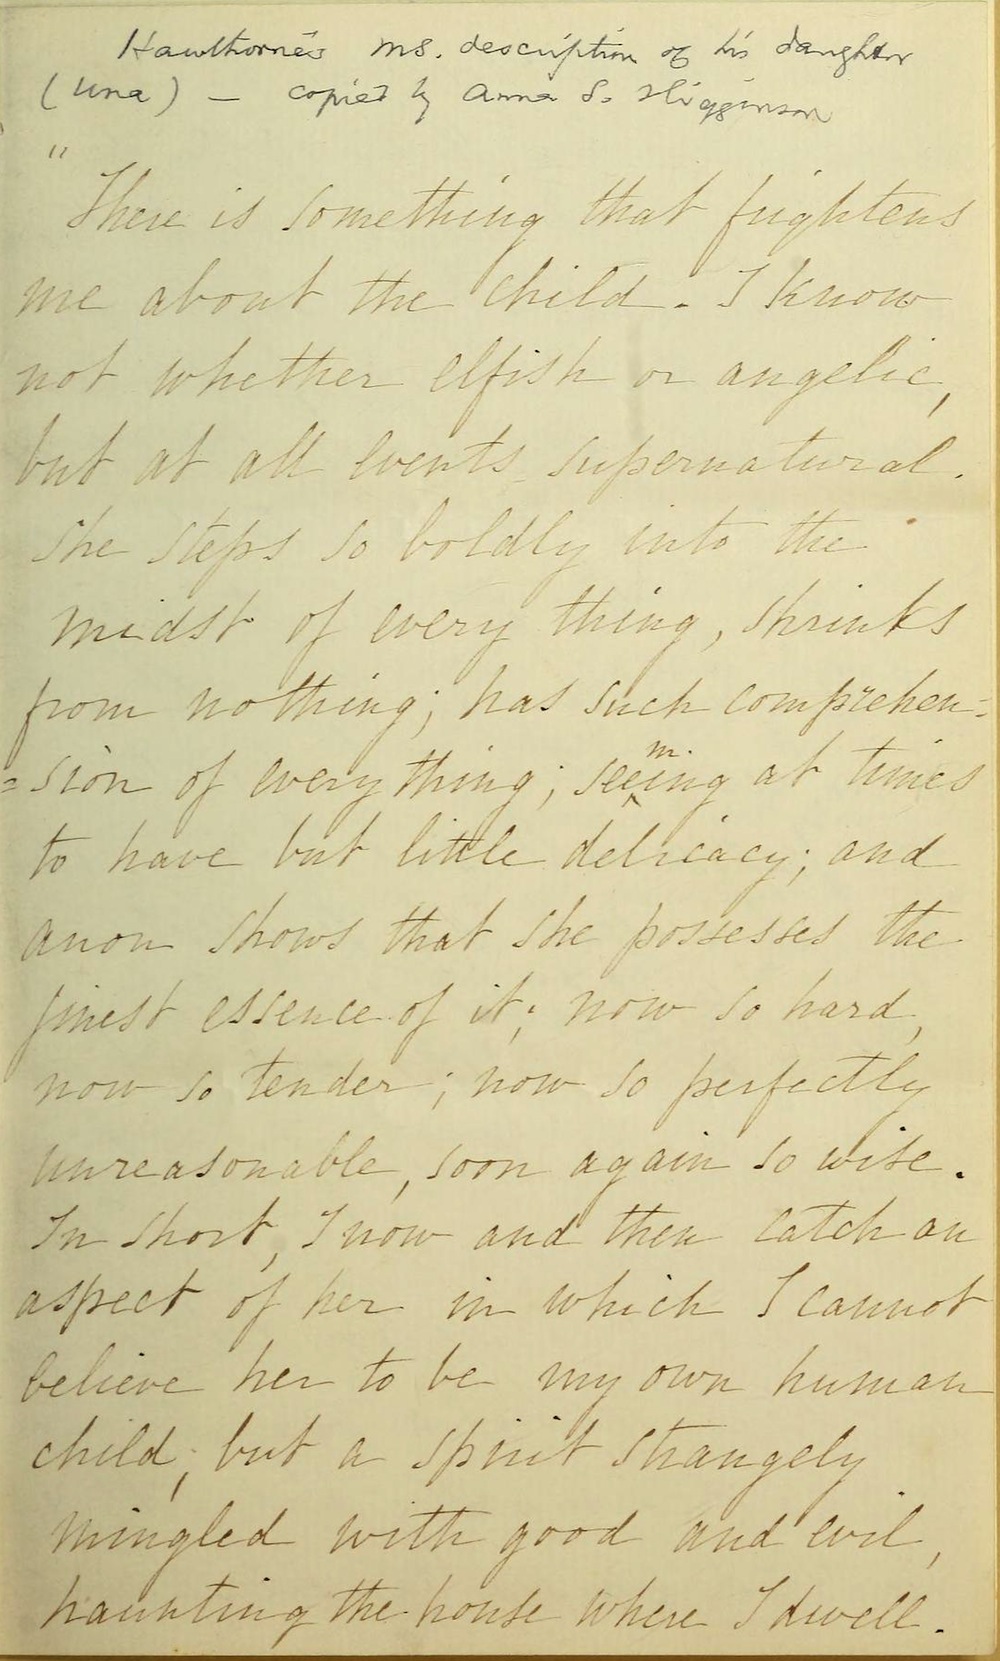 Hawthorne's ms. description of his daughter
(Una) — copied by Anna S. Higginson
"There is something that frightens
me about the child. I know
not whether elfish or angelic,
but at all events supernatural.
She steps so boldly into the
midst of every thing, shrinks
from nothing; has such comprehen=
=sion of everything; seeming at times
to have but little delicacy; and
anon shows that she possesses the
finest essence of it; now so hard,
now so tender; now so perfectly
unreasonable, soon again so wise.
In short, I now and then catch an
aspect of her in which I cannot
believe her to be my own human
child; but a spirit strangely
mingled with good and evil,
haunting the house where I dwell.